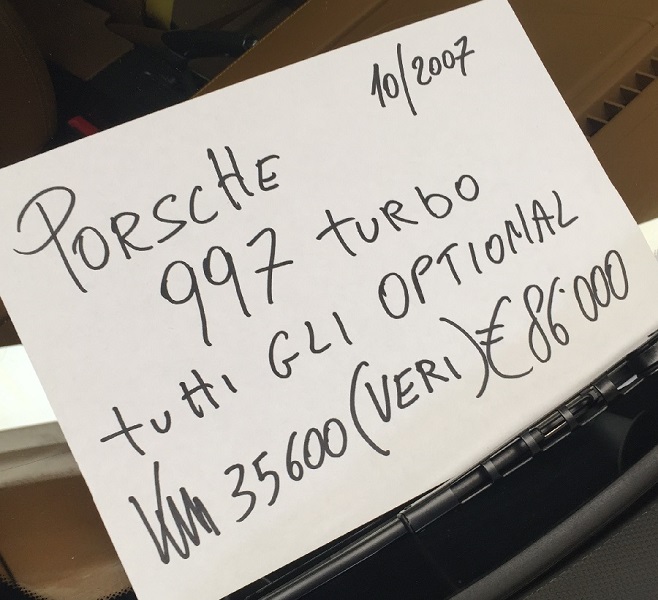 10/2007
PORSCHE
997 turbo
tutti GLI OPTIONAL
Km 35600 (VERI) € 86'000